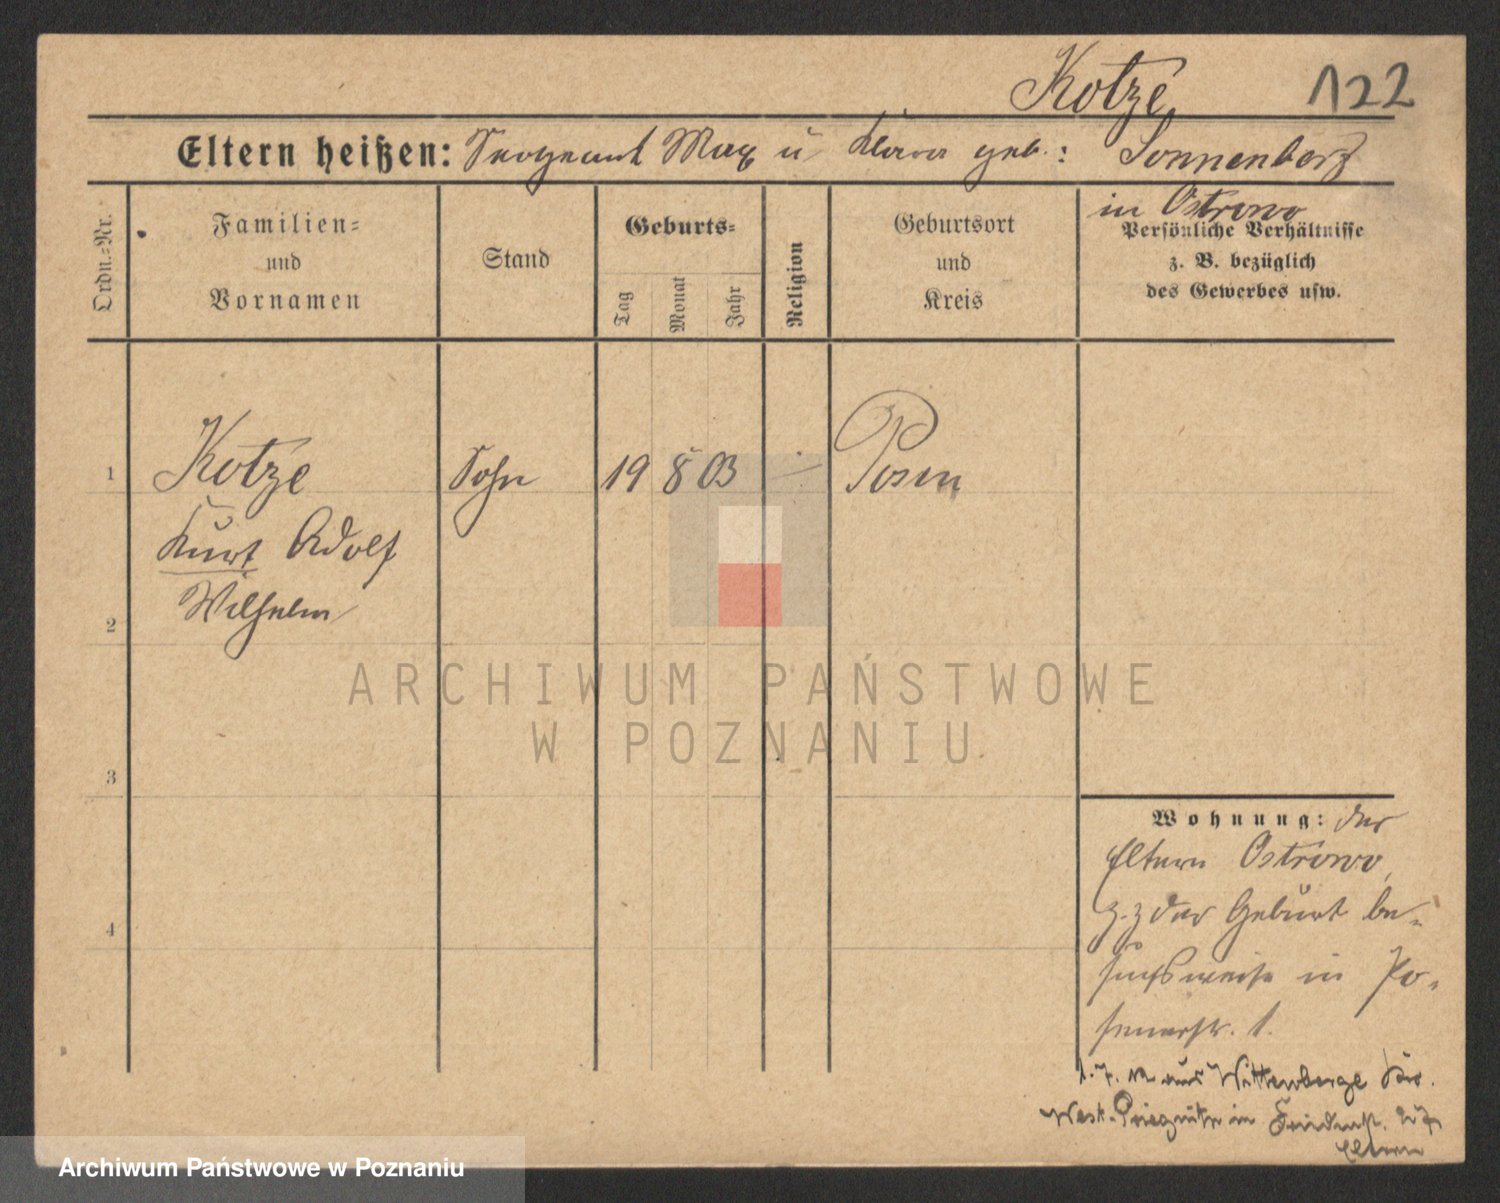 Kotze 122
Eltern heißen: Sergeant Max u Klara geb.: Sonnenberg
in Ostrowo
Ordn.-Nr.
Familien-
und
Vornamen
Stand
Geburts-
Tag
Monat
Jahr
Religion
Geburtsort
und
Kreis
Persönliche Verhältnisse
z. B. bezüglich
des Gewerbes usw.
1 Kotze Sohn 19 8 03 Posen
Kurt Adolf
2 Wilhelm
3
4
Wohnung: der
Eltern Ostrowo,
z. Z der Geburt be-
suchsweise in Po-
senerstr. 1.
1.7. aus Wittenberge Krs.
West-Priegnitz in
Eltern
ARCHIWUM PAŃSTWOWE
W POZNANIU
Archiwum Państwowe w Poznaniu